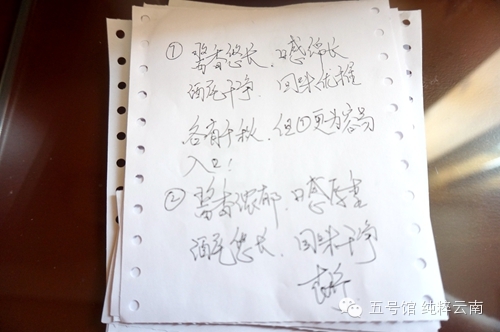 ① 酱香悠长，口感绵长
酒尾干净，回味优雅
各有千秋，但①更为容易
入口！
② 酱香浓郁，口感厚重
酒尾悠长，回味干净
五号馆 纯粹云南